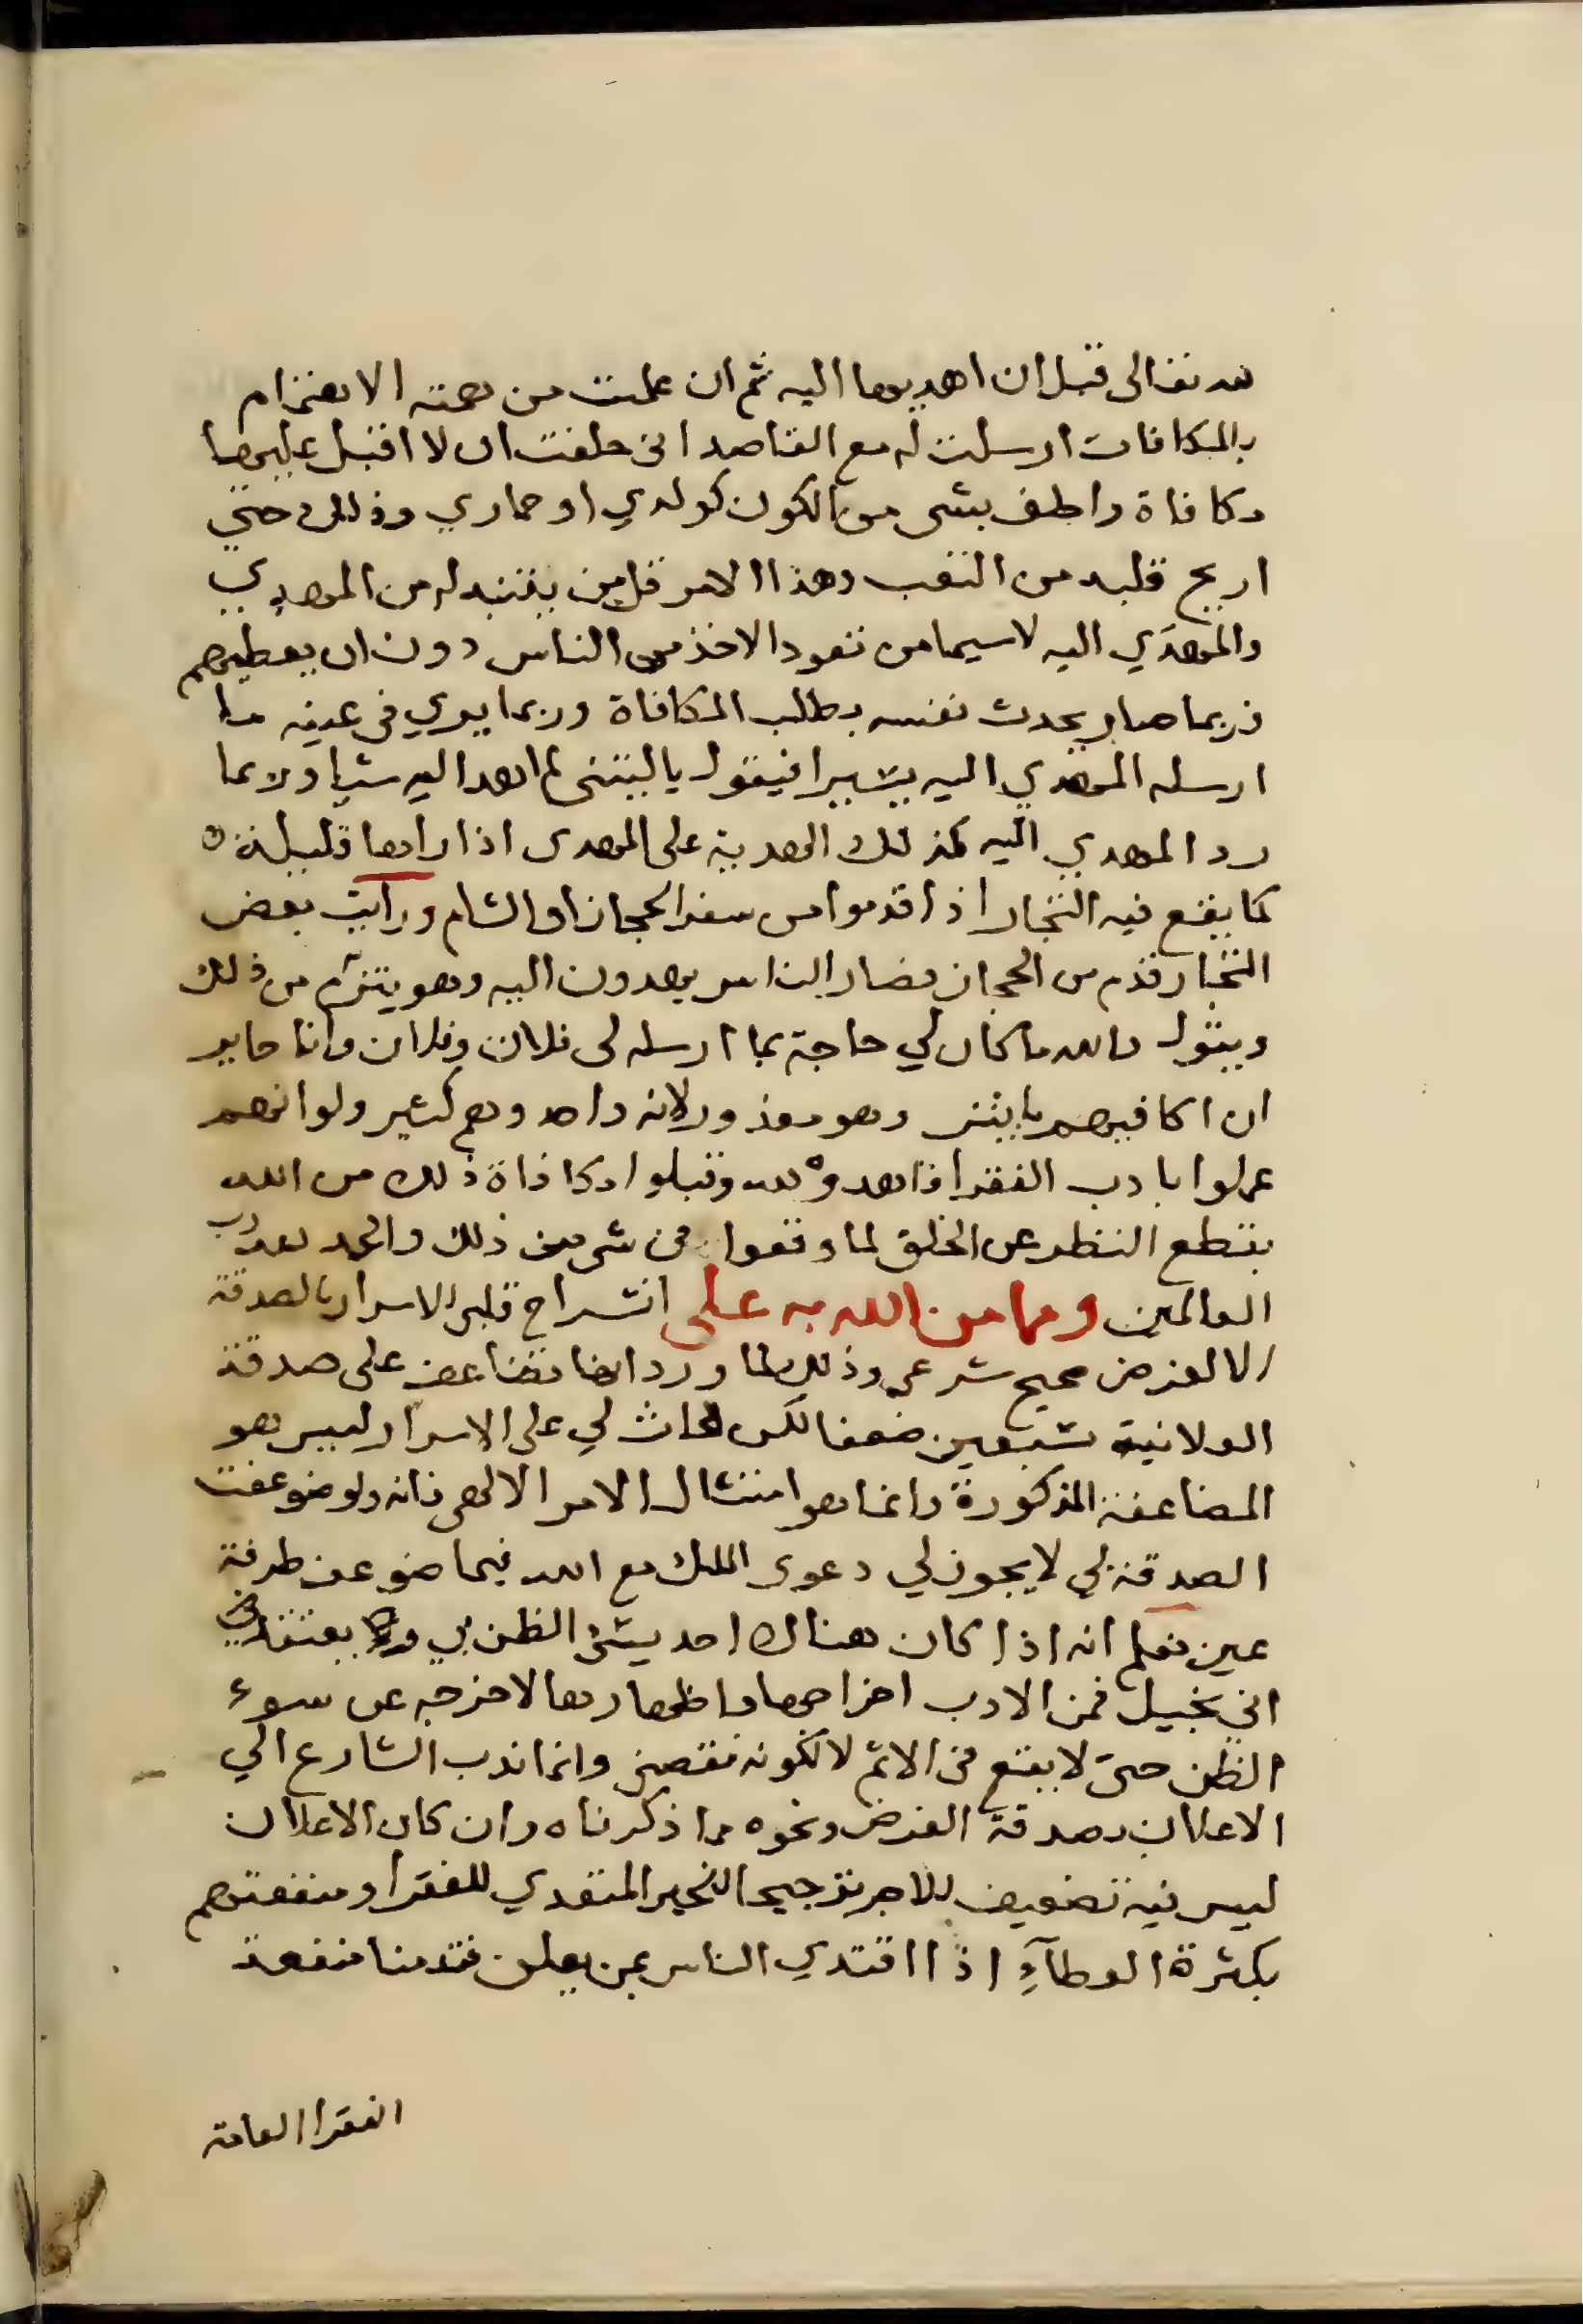 لله تعالى قبل ان اهديها اليه ثم ان علمت من جهته الاهتمام
بالمكافات ارسلت له مع القاصد انى حلفت ان لا اقبل عليها
مكافاة واحلف بشى من الكون كولدي او حماري وذلك حتي
اريح قلبه من التعب وهذا الامر قل من يتنبه له من المهدي
والمهدَي اليه لا سيما من تعود الاخذ من الناس دون ان يعطيهم
فربما صار يحدث نفسه بطلب المكافاة وربما يري في عينه ما
ارسله المهدي اليه يسيرا فيقول ياليتنى لم اهد اليه شيا وربما
رد المهدي اليه كذلك الهدية على المهدى اذا راها قليلة
كما يقع فيه التجار اذا قدموا من سفر الحجاز او الشام ورايت بعض
التجار قدم من الحجاز فصار الناس يهدون اليه وهو يتبرم من ذلك
ويقول والله ما كان لي حاجة بما ارسله لى فلان وفلان وانا حاير
ان اكافيهم بايش وهو معذور لانه واحد وهم كثير ولو انهم
عملوا بادب الفقرا فاهدوه لله وقبلوا مكافاة ذلك من الله
بقطع النظر عن الخلق لما وقعوا فى شى من ذلك والحمد لله رب
العالمين ومما من الله به على انشراح قلبى للاسرار بالصدقة
الا لغرض صحيح شرعى وذلك لما ورد انها تضاعف على صدقة
العلانية سبعين ضعفا لكن الحاث لي على الاسرار ليس هو
المضاعفة المذكورة وانما هو امتثال الامر الالهى فانه ولو ضوعفت
الصدقة بي لا يجوز لي دعوى الملك مع الله فيما ضوعف طرفة
عين نعم انه اذا كان هناك احد يسئ الظن بي ويعتقد في
اني بخيل فمن الادب اخراجها واظهارها لاخرجه عن سوء
الظن حتى لا يقع في الاثم لا لكونه نقصنى وانما ندب الشارع الي
الاعلان بصدقة الفرض ونحوه مما ذكرناه وان كان الاعلان
ليس فيه تضعيف للاجر ترجيحا للخير المتعدي للفقرا ومنفعتهم
بكثرة العطآءِ اذا اقتدي الناس بمن يعلن فقدمنا منفعة
الفقرا العامة